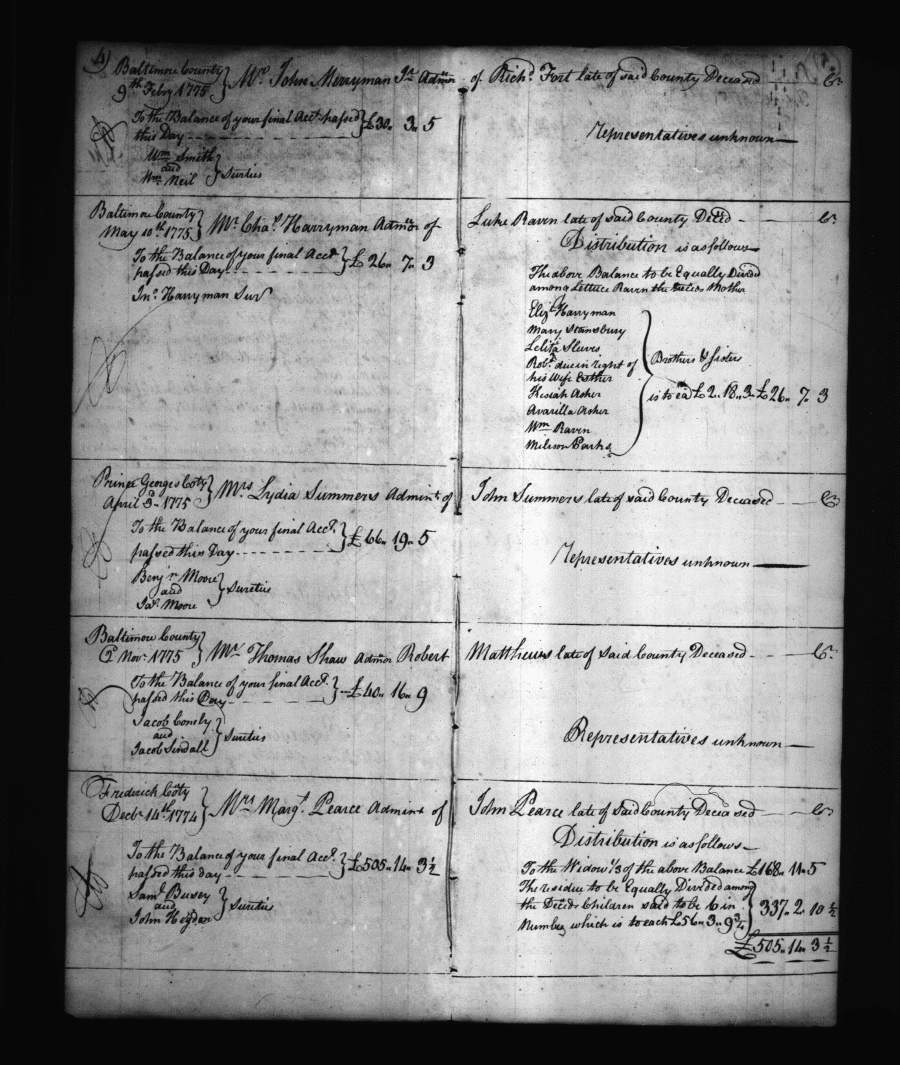 4)
Baltimore County } Mr. John Merryman Jr. Admor of Richd. Fort late of said County Deceased Cr.
9th Febry 1775
To the Balance of your final Acct. passed } £30. 3. 5
this Day
Representatives unknown
Wm Smith
and } Sureties
Wm Neil
Baltimore County } Mr. Chas. Harryman Admor of Luke Raven late of said County Decd. Cr.
May 10th 1775
Distribution is as follows
To the Balance of your final Acct. } £26. 7. 3
passed this Day
Jno. Harryman Sur.
The above Balance to be Equally Divided
among Lettuce Raven the Mother
Eliz. Harryman
Mary Stansbury
Robt. due in right of
his Wife Esther
Kesiah Asher
Avarilla Asher
Wm Raven
Parks
Brothers & Sisters
is to ea £2. 18. 3 £26. 7. 3
Prince Georges Coty } Mrs Lydia Summers Adminx. of John Summers late of said County Deceased Cr.
April 3d 1775
To the Balance of your final Acct. } £66. 19. 5
passed this Day
Representatives unknown
Benjn. Moore
and } Sureties
Jas. Moore
Baltimore County } Mr. Thomas Shaw Admor Robert Matthews late of Said County Deceased Cr.
2 Novr. 1775
To the Balance of your final Acct. } £40. 16. 9
passed this Day
Jacob
and } Sureties
Jacob Sindall
Representatives unknown
Frederick Coty } Mrs Margt. Pearce Adminx of John Pearce late of Said County Deceased Cr.
Decbr. 14th 1774
Distribution is as follows
To the Balance of your final Acct. } £505. 14. 3½
passed this day
Saml. Busey
and } Sureties
John
To the Widow ⅓ of the above Balance £168. 11. 5
The residue to be Equally Divided among
the Decds. Children said to be 6 in } 337. 2. 10½
Number which is to each £56. 3. 9¾
£505. 14. 3½